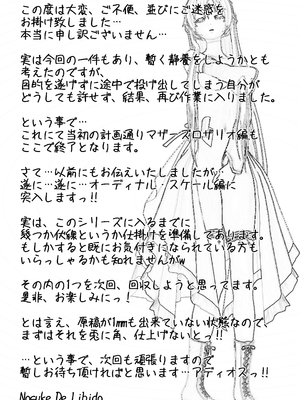 この度は大変、ご不便、並びにご迷惑を
お掛け致しました…
本当に申し訳ございません…
実は今回の一件もあり、暫く静養をしようかとも
考えたのですが、
目的を遂げずに途中で投げ出してしまう自分が
どうしても許せず、結果、再び作業に入りました。
という事で…
これにて当初の計画通りマザーズロザリオ編も
ここで終了となります。
さて…以前にもお伝えいたしましたが…
遂に…遂に…オーディナル・スケール編に
突入しますっ!!
実は、このシリーズに入るまでに
幾つか伏線というか仕掛けを準備してあります。
もしかすると既にお気付きになられている方も
いらっしゃるかも知れませんがw
その内の1つを次回、回収しようと思ってます。
是非、お楽しみにっ!
とは言え、原稿が1mmも出来ていない状態なので
まずはそれを兎に角、仕上げないとっ!!
…という事で、次回も頑張りますので
暫しお待ち頂ければと思います…アディオスっ!!
Nosuke De Libido